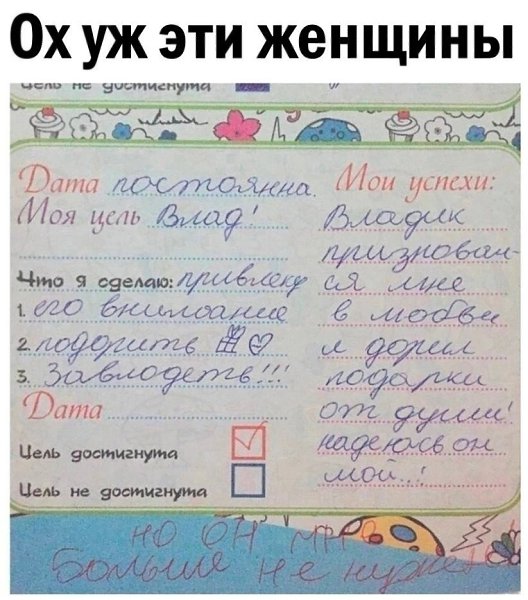 Ох уж эти женщины
Цель не достигнута
Дата постоянна.
Моя цель Влад!
Что я сделаю: привлеку
1. его внимание
2. подорить
3. Завлодеть!!!
Дата
Цель достигнута
Цель не достигнута
Мои успехи:
Владик
призновал-
ся мне
в любви
и дорил
подарки
от души!
надеюсь он
мой..!
но он мне
Больше не нужен!